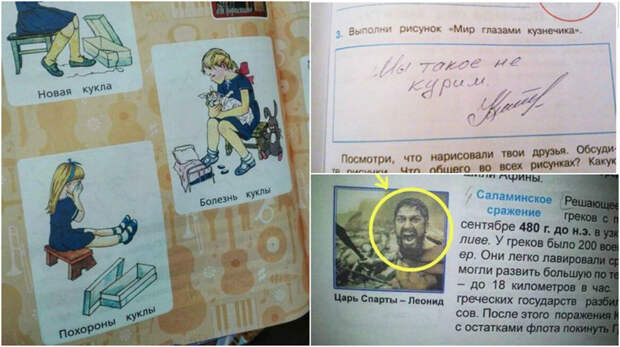 Новая кукла
Болезнь куклы
Похороны куклы
3. Выполни рисунок «Мир глазами кузнечика».
Мы такое не
курим.
Посмотри, что нарисовали твои друзья. Обсуди-
рисунки. Что общего во всех рисунках?
Афины.
Саламинское
сражение
Решающее
греков с п
сентябре 480 г. до н.э. в узк
ливе. У греков было 200 вое
ер. Они легко лавировали ср
могли развить большую по те
– до 18 километров в час.
греческих государств разбил
сов. После этого поражения К
с остатками флота покинуть Г
Царь Спарты – Леонид